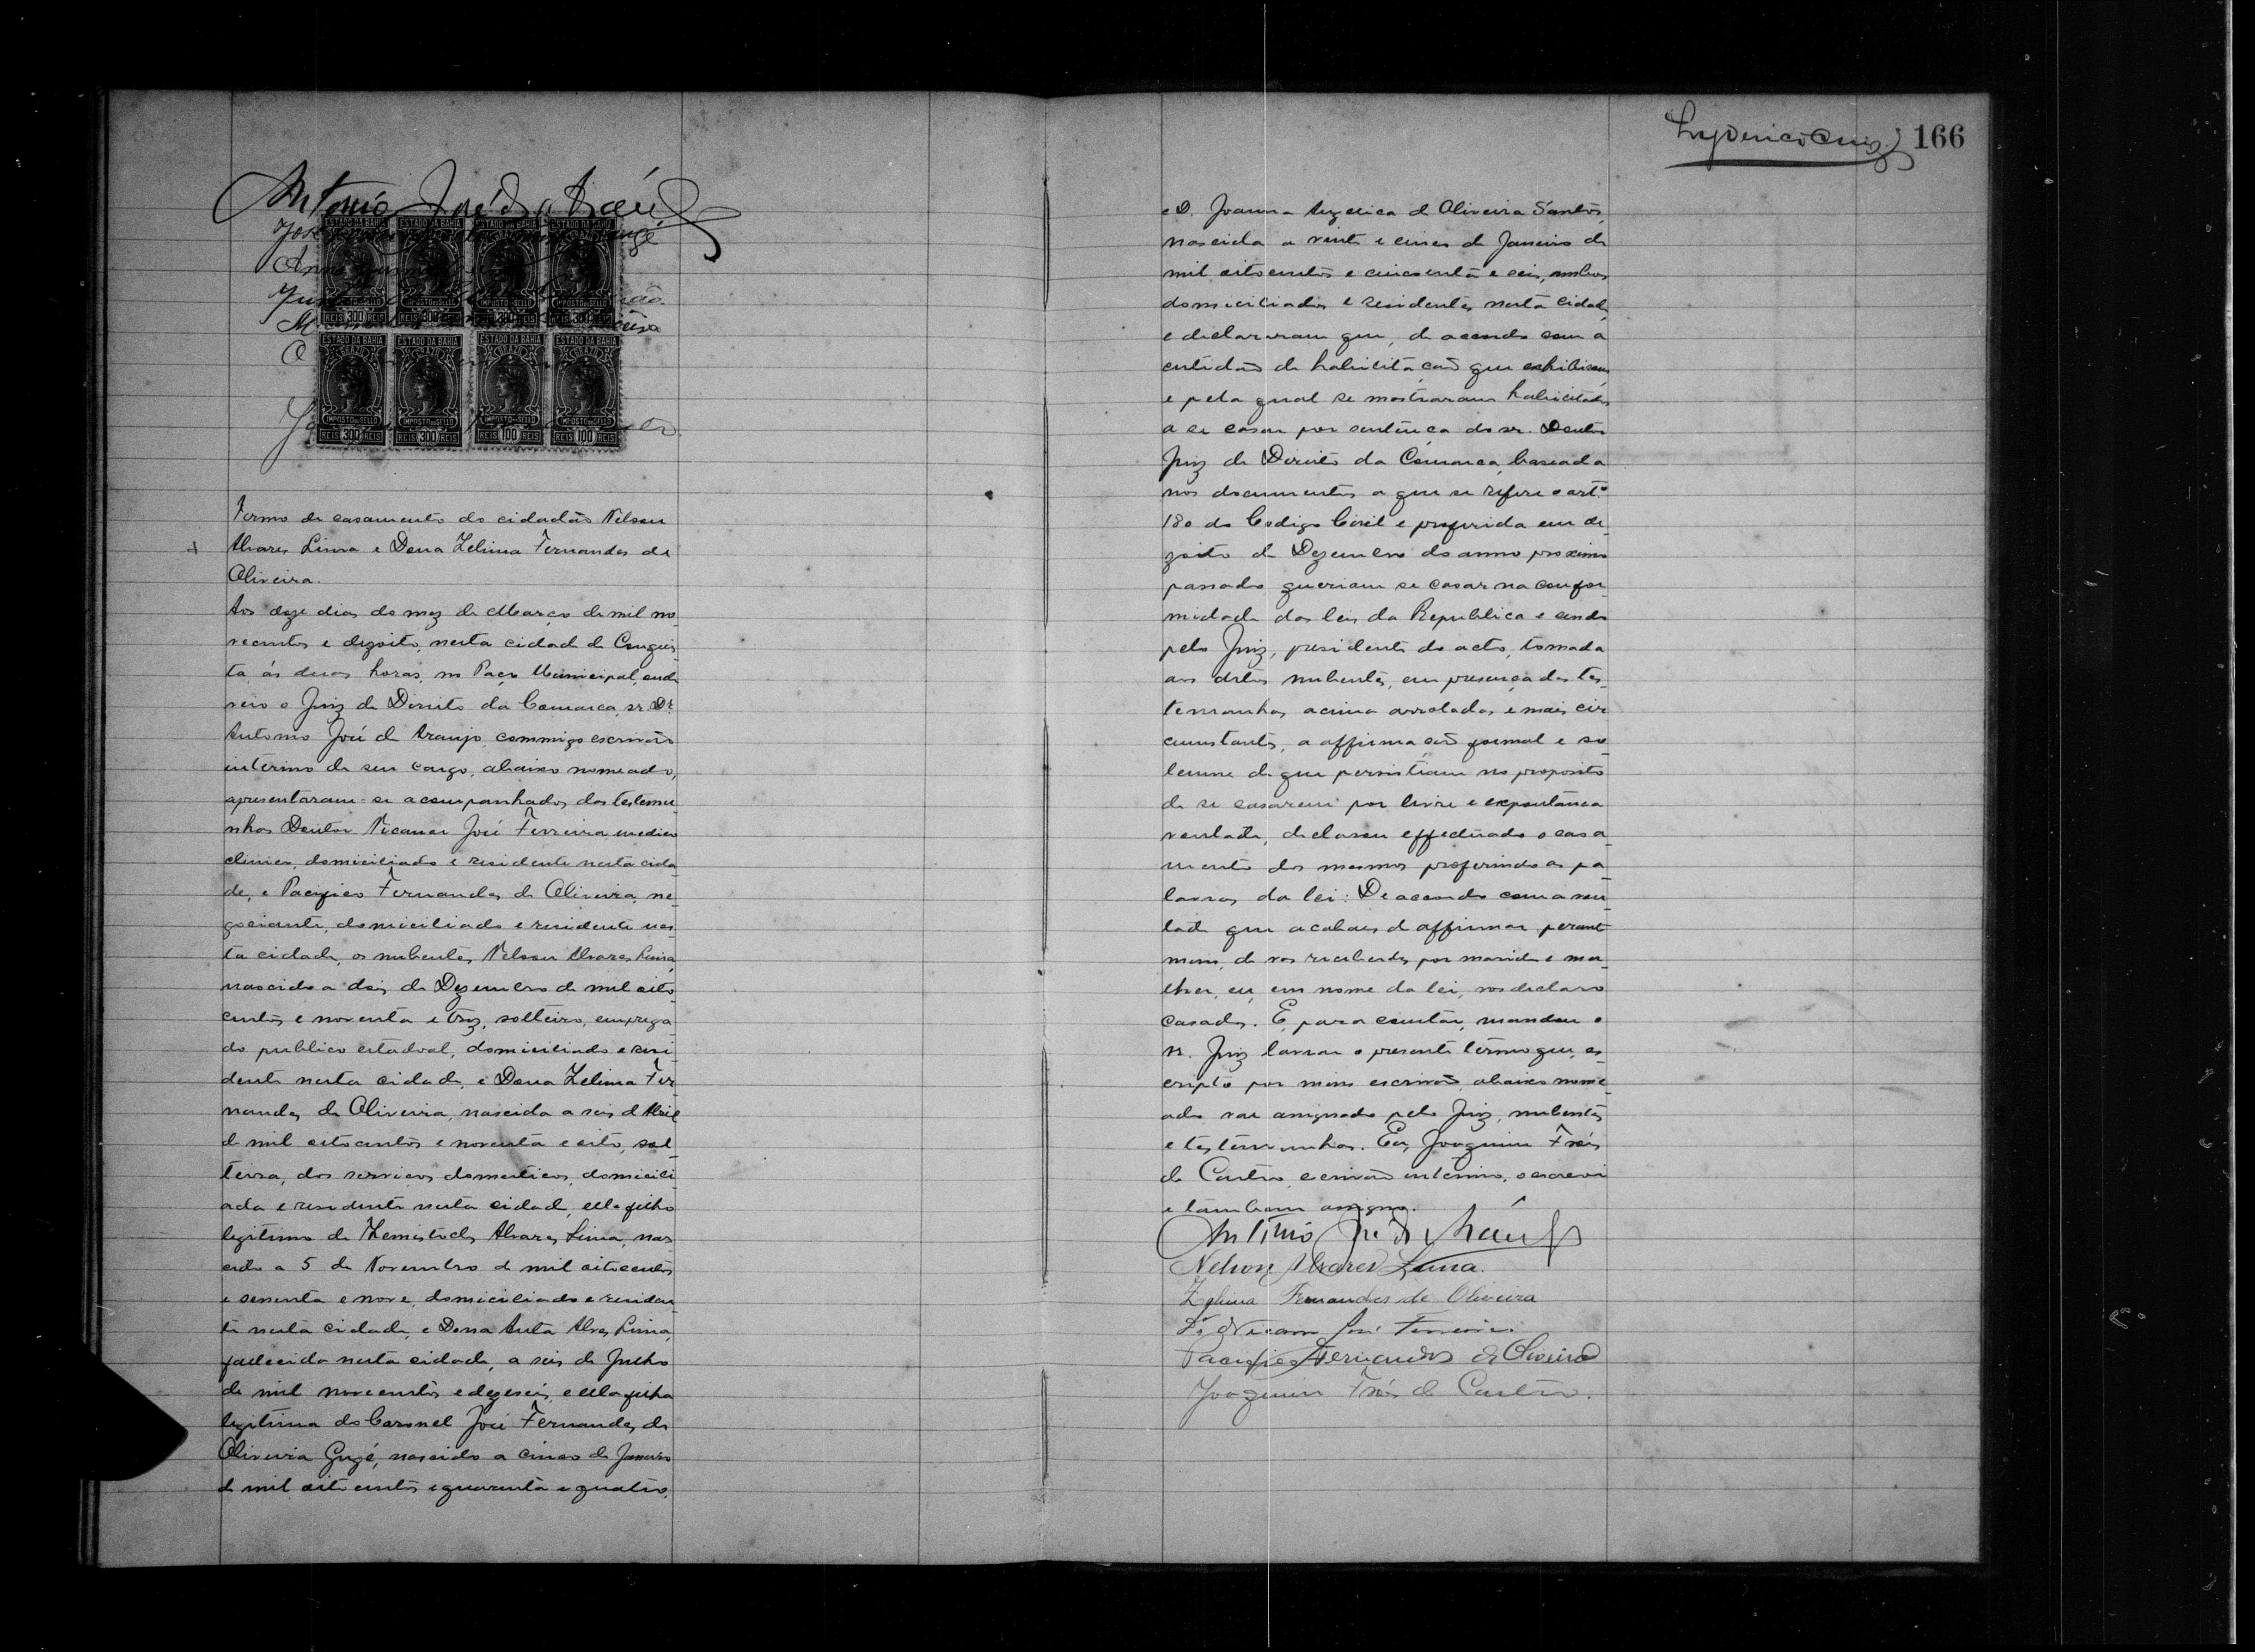 Antonio José de Araujo
ESTADO DA BAHIA ESTADO DA BAHIA ESTADO DA BAHIA ESTADO DA BAHIA
IMPOSTO DO SELLO IMPOSTO DO SELLO IMPOSTO DO SELLO IMPOSTO DO SELLO
REIS 300 REIS REIS 300 REIS REIS 300 REIS REIS 300 REIS
ESTADO DA BAHIA ESTADO DA BAHIA ESTADO DA BAHIA ESTADO DA BAHIA
BRAZIL BRAZIL BRAZIL BRAZIL
IMPOSTO DO SELLO IMPOSTO DO SELLO IMPOSTO DO SELLO IMPOSTO DO SELLO
REIS 300 REIS REIS 300 REIS REIS 100 REIS REIS 100 REIS
Termo de casamento do cidadão Nelson
Alvares Lima e Dona Zelima Fernandes de
Oliveira.
Aos doze dias do mez de Março de mil no-
vecentos e dezoito, nesta cidade de Conquis-
ta, ás duas horas, no Paço Municipal, onde
veio o Juiz de Direito da Comarca, sr. Dr.
Antonio José de Araujo, commigo escrivão
interino de seu cargo, abaixo nomeado,
apresentaram-se acompanhados das testemu-
nhas Doutor Nicanor José Ferreira medico
clinico, domiciliado e residente nesta cida-
de, e Pacifico Fernandes de Oliveira, ne-
gociante, domiciliado e residente nes-
ta cidade, os nubentes, Nelson Alvares Lima,
nascido a dois de Dezembro de mil oito-
centos e noventa e trez, solteiro, emprega-
do publico estadoal, domiciliado e resi-
dente nesta cidade, e Dona Zelima Fer-
nandes de Oliveira, nascida a seis de Abril
de mil oitocentos e noventa e oito, sol-
teira, dos serviços domesticos, domicili-
ada e residente nesta cidade, elle filho
legitimo de Themistocles Alvares Lima, nas-
cido a 5 de Novembro de mil oitocentos
e sessenta e nove, domiciliado e residen-
te nesta cidade, e Dona Auta Alves Lima,
fallecida nesta cidade, a seis de Julho
de mil novecentos e dezeseis, e ella filha
legitima do Coronel José Fernandes de
Oliveira Gugé, nascido a cinco de Janeiro
de mil oitocentos e quarenta e quatro,
166
e D. Joanna Angelica de Oliveira Santos,
nascida a vinte e cinco de Janeiro de
mil oitocentos e cincoenta e seis, ambos
domiciliados e residentes nesta cidade,
e declararam que, de accordo com a
certidão de habilitação que exhibiram
e pela qual se mostraram habilitados
a se casar por sentença do sr. Doutor
Juiz de Direito da Comarca, baseada
nos documentos a que se refere o art.º
180 do Codigo Civil e proferida em de-
zoito de Dezembro do anno proximo
passado, queriam se casar na confor-
midade das leis da Republica e sendo
pelo Juiz, presidente do acto, tomada
aos ditos nubentes, em presença das tes-
temunhas acima arroladas, e mais cir-
cumstantes, a affirmação formal e so-
lemne de que persistiam no proposito
de se casarem por livre e expontanea
vontade, declarou effectuado o casa-
mento dos mesmos proferindo as pa-
lavras da lei: De accordo com a von-
tade que acabaes de affirmar perante
mim, de vos receberdes por marido e mu-
lher, eu, em nome da lei, vos declaro
casados. E, para constar, mandou o
sr. Juiz lavrar o presente termo que, es-
cripto por mim escrivão, abaixo nome-
ado vae assignado pelo Juiz, nubentes
e testemunhas. Eu, Joaquim Fróis
de Castro, escrivão interino, o escrevi
e tambem assigno.
Antonio José de Araujo
Nelson Alvares Lima.
Zelima Fernandes de Oliveira
Dr. Nicanor José Ferreira.
Pacifico Fernandes de Oliveira
Joaquim Fróis de Castro.